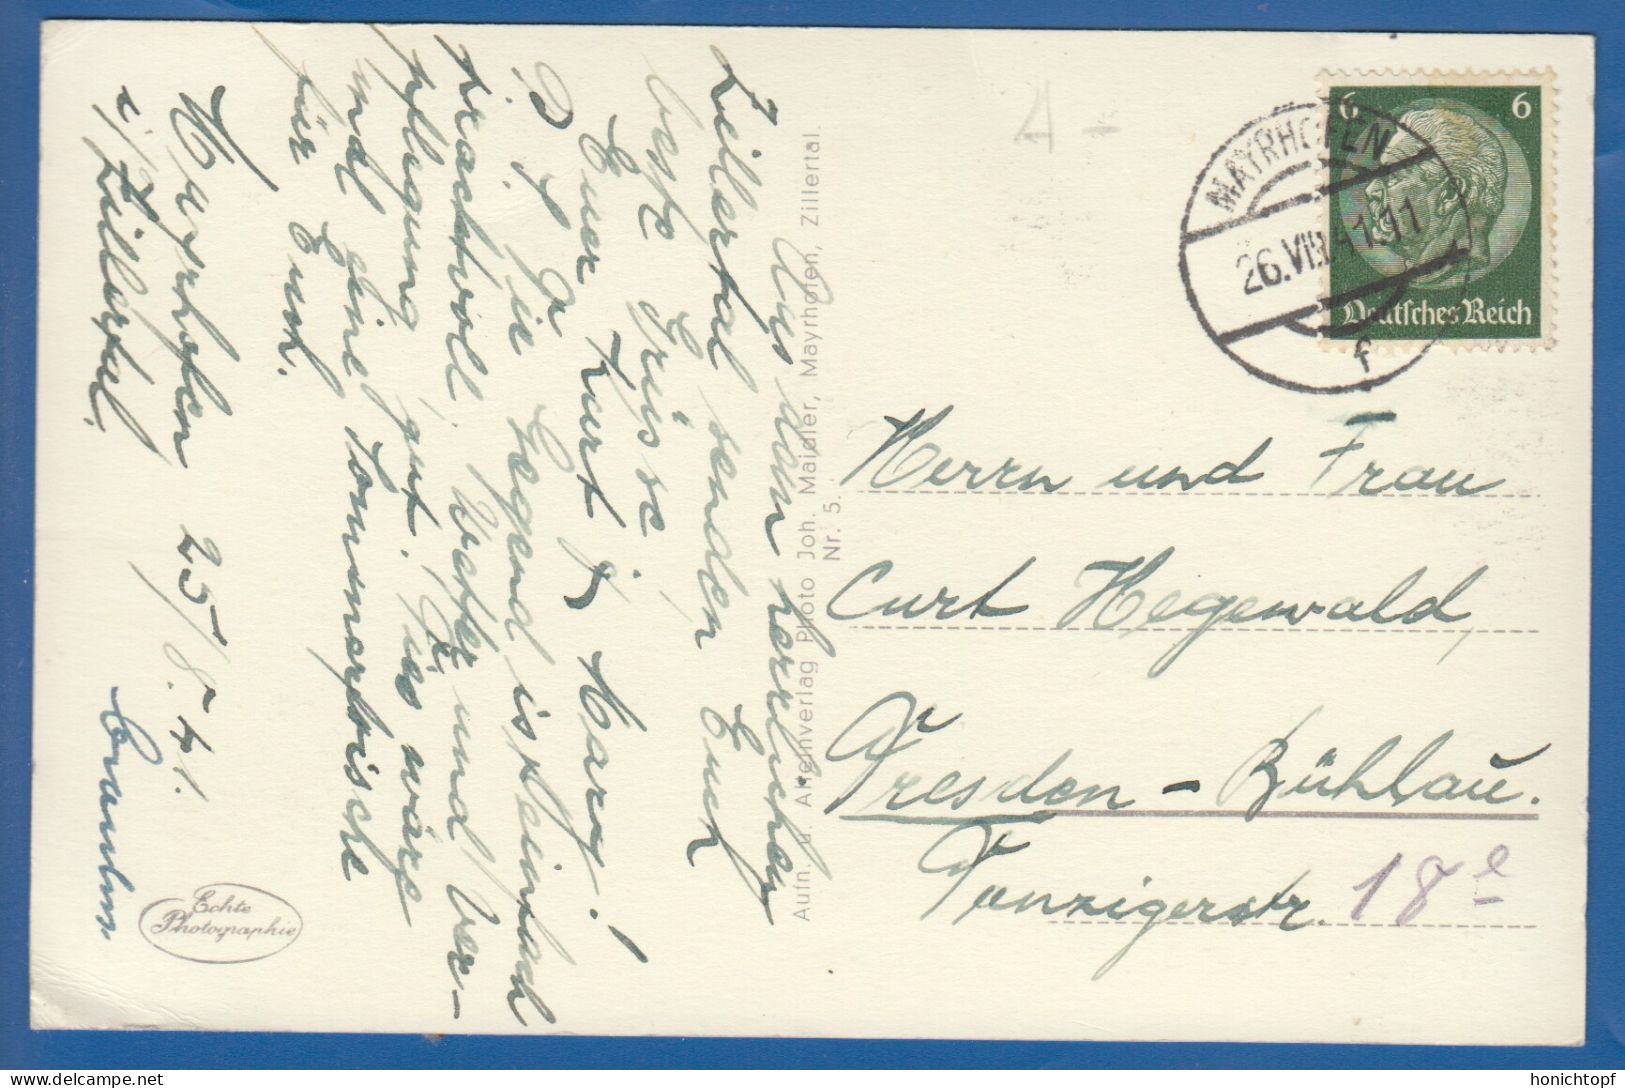 Mayrhofen 25/8.41.
i/Zillertal.
Aus dem herrlichen
Zillertal senden Euch
beste Grüsse
Euer Kurt & Mary!
D. g. Die Gegend ist einfach
prachtvoll. Wetter und Ver-
pflegung gut. Dies wäre
und eine Sommerfrische
für Euch.
Echte
Photographie
Aufn. u. Alleinverlag Photo Joh. Maidler, Mayrhofen, Zillertal.
Nr. 5.
6 6
Deutsches Reich
MAYRHOFEN
26.VIII.41.11
f
Herrn und Frau
Curt Hegewald,
Dresden - Bühlau.
Danzigerstr. 18e
honichtopf